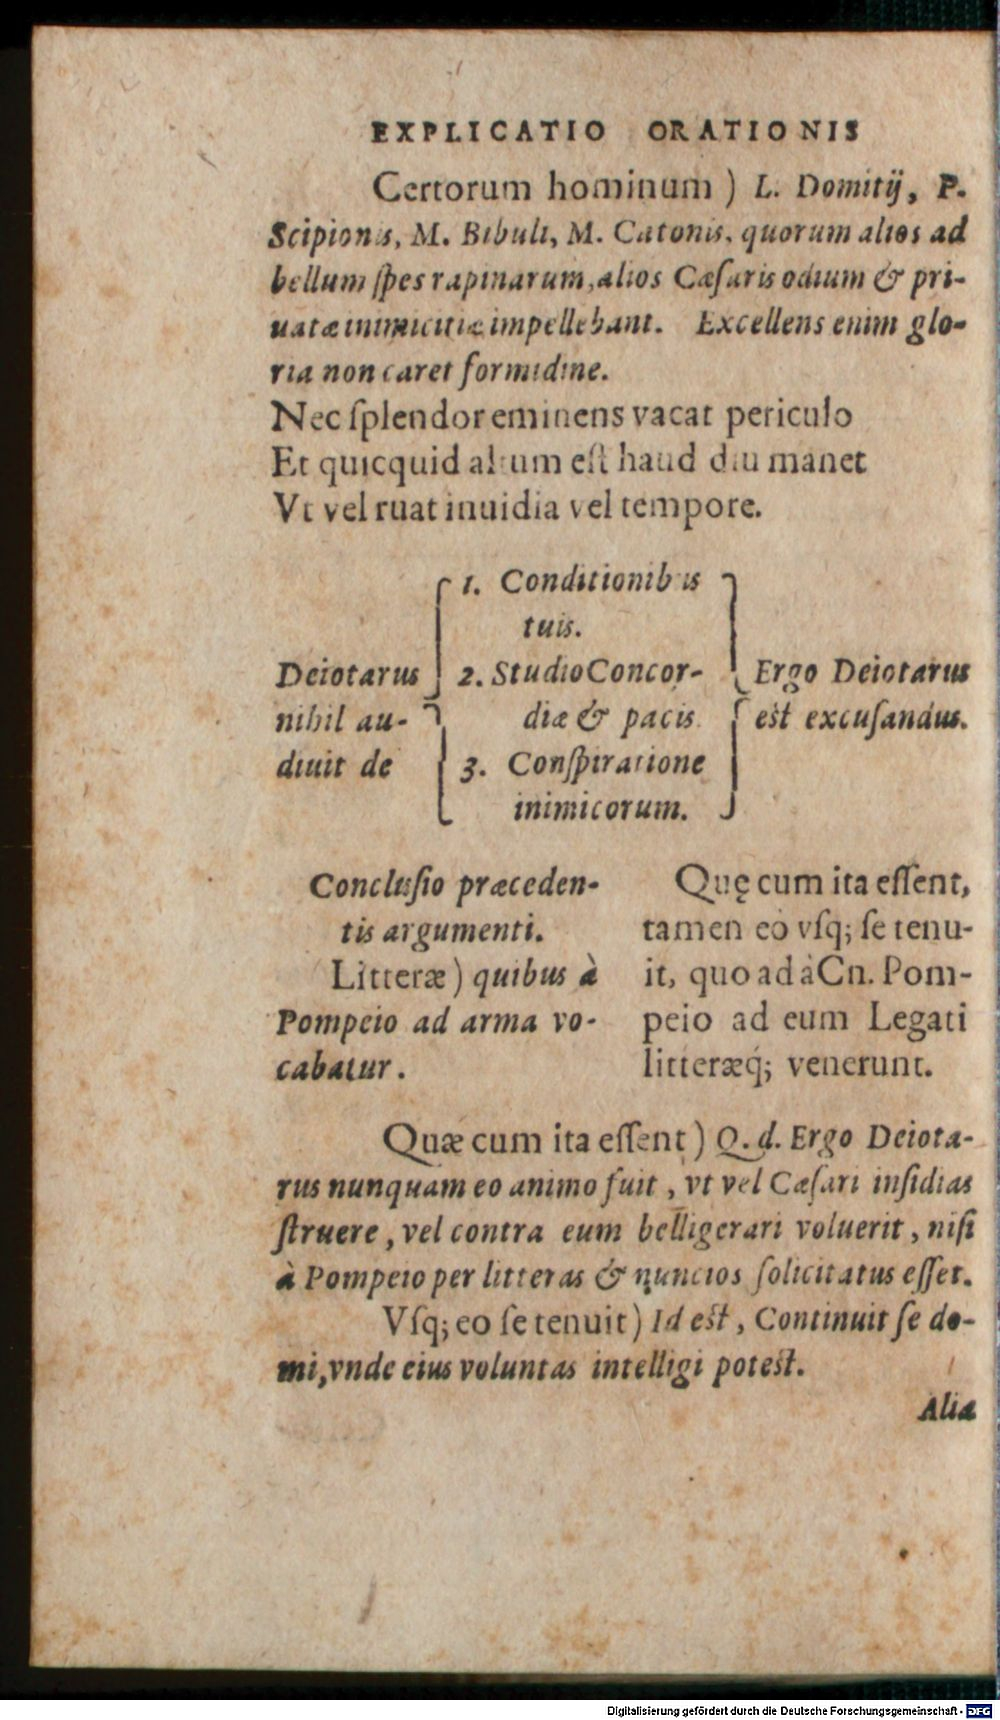 EXPLICATIO ORATIONIS
Certorum hominum ) L. Domitij, P.
Scipionis, M. Bibuli, M. Catonis, quorum alios ad
bellum ſpes rapinarum, alios Cæſaris odium & pri-
uatæ inimicitiæ impellebant. Excellens enim glo-
ria non caret formidine.
Nec ſplendor eminens vacat periculo
Et quicquid altum eſt haud diu manet
Vt vel ruat inuidia vel tempore.
Deiotarus
nihil au-
diuit de
1. Conditionibus
tuis.
2. Studio Concor-
diæ & pacis
3. Conſpiratione
inimicorum.
Ergo Deiotarus
est excuſandus.
Concluſio præceden-
tis argumenti.
Litteræ ) quibus à
Pompeio ad arma vo-
cabatur.
Quę cum ita eſſent,
tamen eò vſq; ſe tenu-
it, quo ad à Cn. Pom-
peio ad eum Legati
litteræq́; venerunt.
Quæ cum ita eſſent ) Q. d. Ergo Deiota-
rus nunquam eo animo fuit, vt vel Cæſari inſidias
ſtruere, vel contra eum belligerari voluerit, niſi
à Pompeio per litteras & nuncios ſolicitatus eſſet.
Vſq; eo ſe tenuit ) Id est, Continuit ſe do-
mi, vnde eius voluntas intelligi potest.
Alia
Digitalisierung gefördert durch die Deutsche Forschungsgemeinschaft - DFG